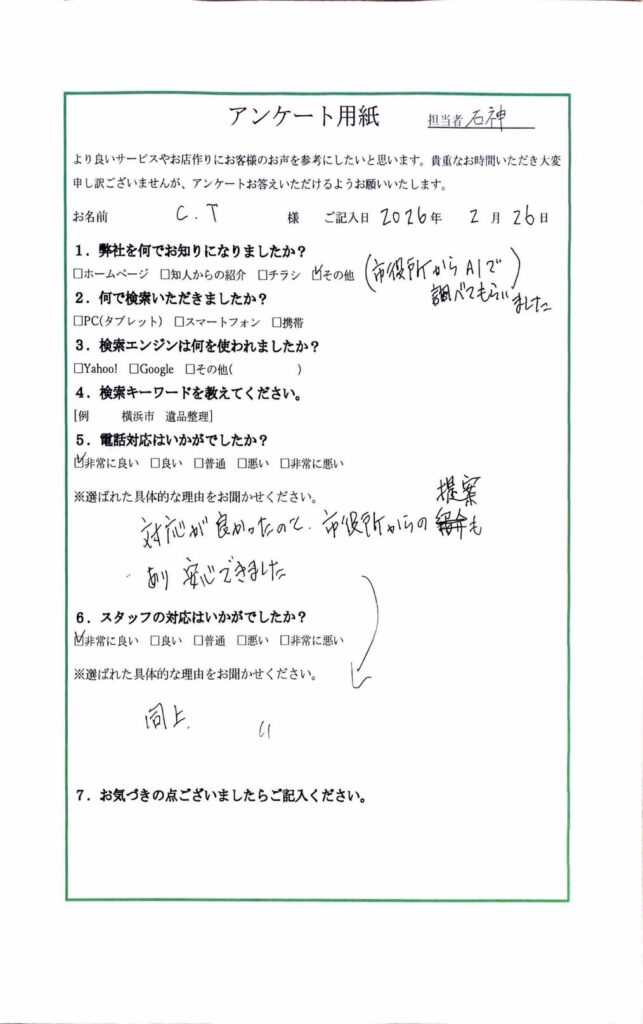 アンケート用紙
担当者 石神
より良いサービスやお店作りにお客様のお声を参考にしたいと思います。貴重なお時間いただき大変
申し訳ございませんが、アンケートお答えいただけるようお願いいたします。
お名前 C.T 様 ご記入日 2026年 2月 26日
1．弊社を何でお知りになりましたか？
□ホームページ □知人からの紹介 □チラシ ☑その他 (市役所からAIで
調べてもらいました)
2．何で検索いただきましたか？
□PC(タブレット) □スマートフォン □携帯
3．検索エンジンは何を使われましたか？
□Yahoo! □Google □その他( )
4．検索キーワードを教えてください。
[例 横浜市 遺品整理]
5．電話対応はいかがでしたか？
☑非常に良い □良い □普通 □悪い □非常に悪い
※選ばれた具体的な理由をお聞かせください。
対応が良かったので、市役所からの提案も
あり安心できました
6．スタッフの対応はいかがでしたか？
☑非常に良い □良い □普通 □悪い □非常に悪い
※選ばれた具体的な理由をお聞かせください。
同上 〃
7．お気づきの点ございましたらご記入ください。